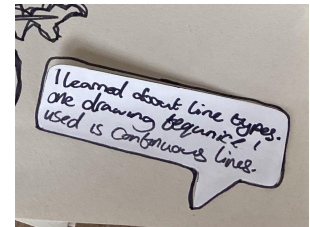 I learned about line types.
one drawing tequnice I
used is continuous lines.